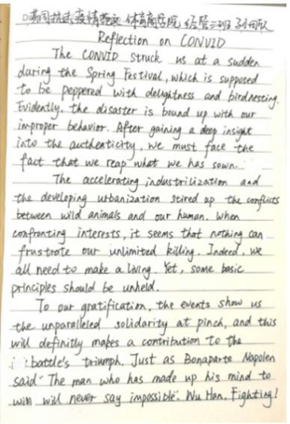 英国抗击疫情英文 体育商学院 经管三班 孙田欣
Reflection on CONVID
The CONVID struck us at a sudden
during the Spring Festival, which is supposed
to be peppered with delightness and birdnesting.
Evidently, the disaster is bound up with our
improper behavior. After gaining a deep insight
into the authenticity, we must face the
fact that we reap what we has sown.
The accelerating industrilization and
the developing urbanization stired up the conflicts
between wild animals and our human. When
confronting interests, it seems that nothing can
frustrate our unlimited killing. Indeed, we
all need to make a living. Yet, some basic
principles should be unheld.
To our gratification, the events show us
the unparalleled solidarity at pinch, and this
will definitly makes a contribution to the
battle's triumph. Just as Bonaparte Napolen
said "The man who has made up his mind to
win will never say impossible". Wu Han, Fighting!